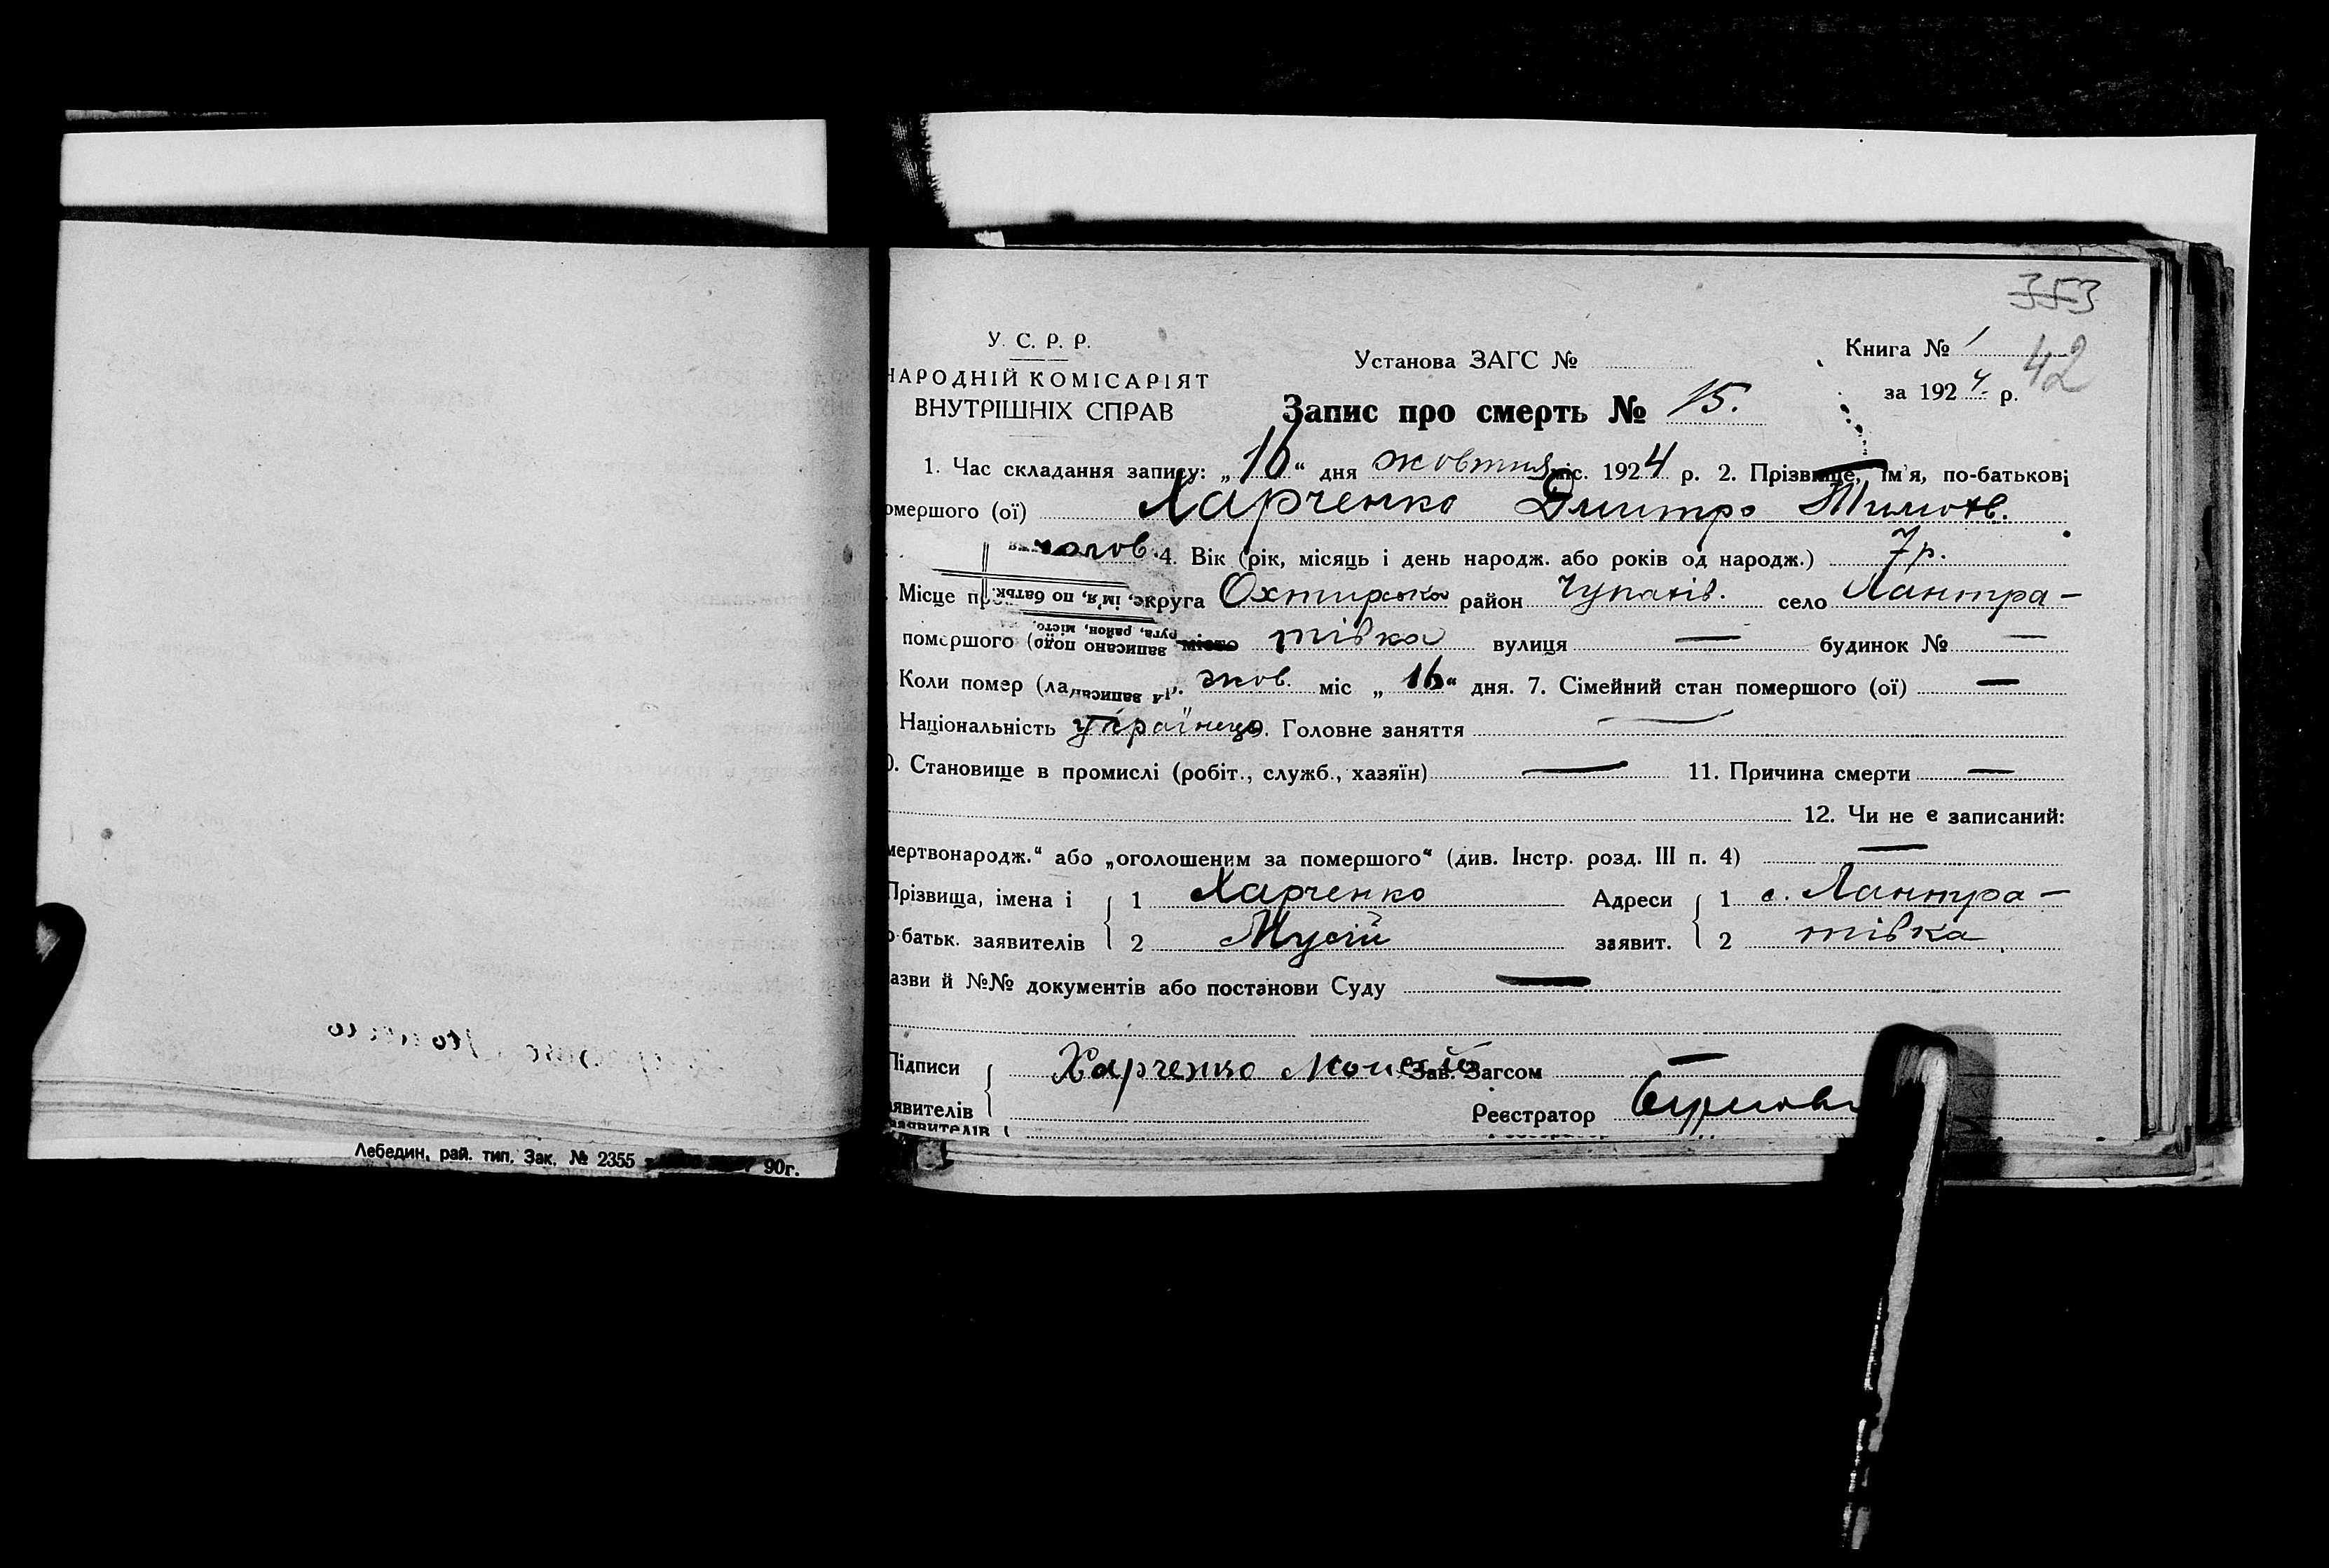 353
У. С. Р. Р.
НАРОДНІЙ КОМІСАРІЯТ
ВНУТРІШНІХ СПРАВ
Установа ЗАГС №
Книга № 1
42
за 1924 р.
Запис про смерть № 15.
1. Час складання запису: „16“ дня жовтня міс. 1924 р. 2. Прізвище, ім'я, по-батькові
омершого (ої) Харченко Дмитро Тимоф.
чолов. 4. Вік (рік, місяць і день народж. або років од народж.) 7 р.
Місце округа Охтирська район Чупахів. село Лантра-
помершого (ої) тівка вулиця — будинок № —
Коли помер (ла) р. жов. міс „16“ дня. 7. Сімейний стан помершого (ої) —
Національність українець. Головне заняття —
0. Становище в промислі (робіт., служб., хазяїн) — 11. Причина смерти —
12. Чи не є записаний:
мертвонародж.“ або „оголошеним за помершого“ (див. Інстр. розд. III п. 4) —
Прізвища, імена і 1 Харченко Адреси 1 с. Лантра-
о-батьк. заявителів 2 Мусій заявит. 2 тівка
азви й №№ документів або постанови Суду —
Підписи Харченко Моисей Зав. Загсом —
аявителів Реєстратор
Лебедин, рай. тип. Зак. № 2355 90г.